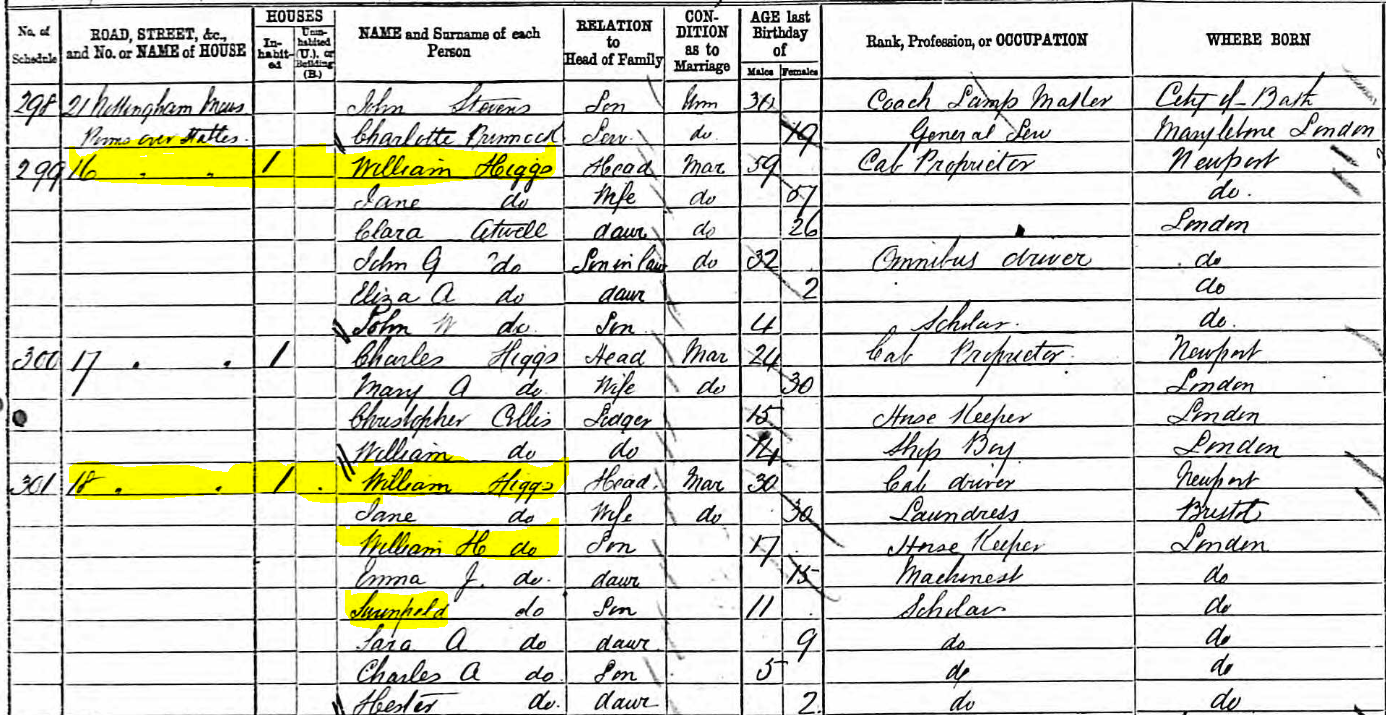 No. of Schedule ROAD, STREET, &c., and No. or NAME of HOUSE HOUSES In-habit-ed Unin-habited (U.), or Building (B.) NAME and Surname of each Person RELATION to Head of Family CON-DITION as to Marriage AGE last Birthday of Males Females Rank, Profession, or OCCUPATION WHERE BORN
298 21 Nottingham Mews John Stevens Son Unm 30 Coach Lamp Maker City of Bath
Rooms over Stables Charlotte Serv. do 19 General Serv Marylebone London
299 16 " " 1 William Higgs Head Mar 59 Cab Proprietor Newport
Jane do Wife do 57 do.
Clara Atwell daur do 26 London
John G do Son in law do 32 Omnibus driver do
Eliza A do daur 2 do
John W do. Son 4 Scholar. do.
300 17 " " 1 Charles Higgs Head Mar 24 Cab Proprietor. Newport
Mary A do. Wife do 30 London
Christopher Collis Lodger 15 Horse Keeper London
William do do 14 Shop Boy London
301 18 " " 1 William Higgs Head. Mar 30 Cab driver Newport
Jane do Wife do 30 Laundress Bristol
William H do Son 17 Horse Keeper London
Emma J. do. daur 15 Machinest do
do Son 11 Scholar do
Sara A do daur. 9 do do
Charles A do. Son 5 do do
Hester do. daur 2 do do